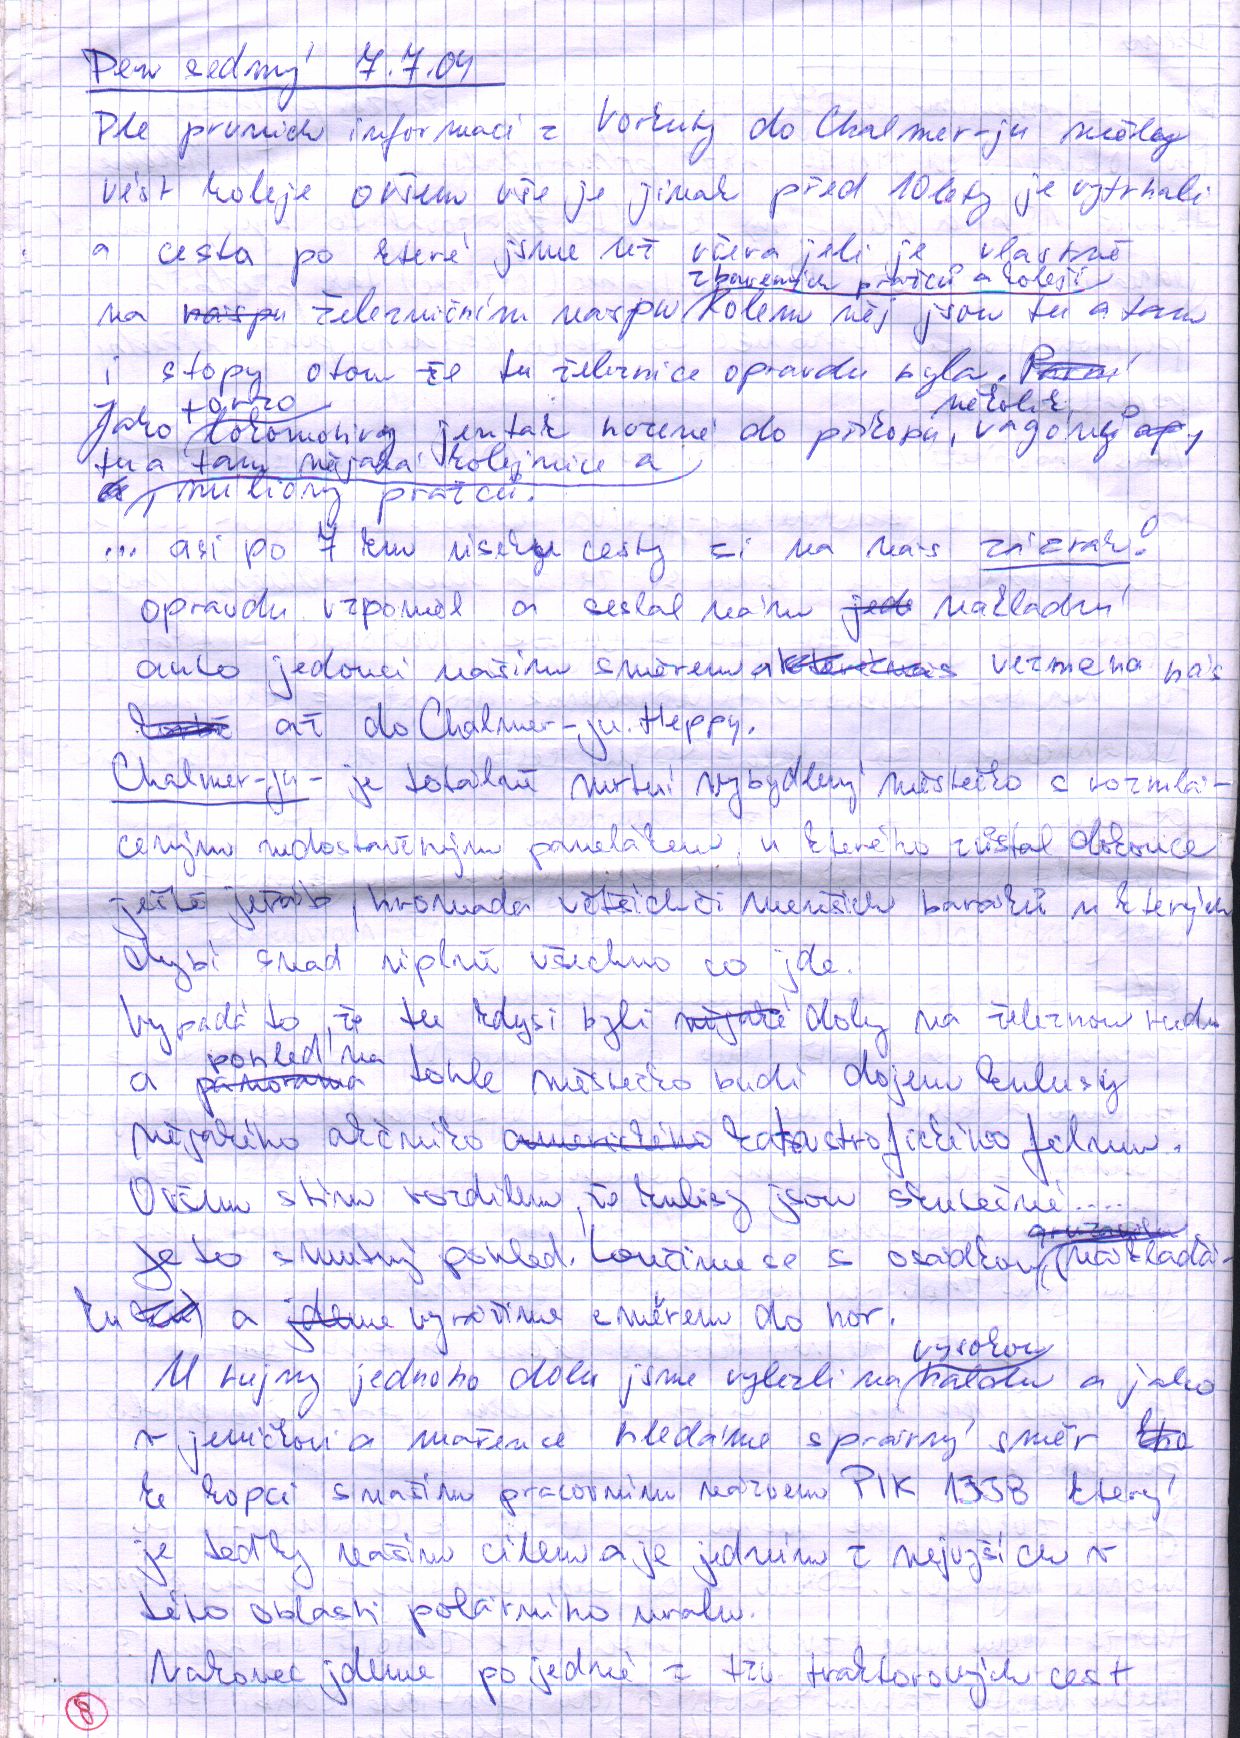 Den sedmý 7.7.04
Dle prvních informací z Vorkuty do Chalmer-ju měly
vést koleje ovšem vše je jinak před 10 lety je vytrhali
a cesta po které jsme už včera jeli je vlastně
zbavených pražců a kolejí
na naspu železničním naspu kolem něj jsou tu a tam
i stopy otom že tu železnice opravdu byla.
torzo několik
Jako lokomotivy jen tak hozené do příkopu, vagónů
tu a tam nějaká kolejnice a
milióny pražců.
... asi po 7 km niseky cesty si na nás zázrak!
opravdu vzpoměl a seslal nám jede nákladní
auto jedoucí našim směrem a vezme na nás
až do Chalmer-ju. Heppy.
Chalmer-ju - je totálně mrtví vybydlený městečko s rozmlá-
ceným nedostavěným panelákem, u kterého zůstal dokonce
ještě jeřáb, hromada větších či menších baráků u kterých
chybí snad úplně všechno co jde.
Vypadá to, že tu kdysi byli nějaké doly na železnou rudu
pohled na
a panorama tohle městečko budí dojem kulisy
nějakého akčního amerického katastrofického filmu.
Ovšem stím rozdílem, že kulisy jsou skutečné ....
je to smutný pohled. Loučíme se s osádkou náklaďá-
ku a jdeme vyrážíme směrem do hor.
vysokou
U rujny jednoho dolu jsme vylezli na haldu a jako
v jeníčkovi a mařence hledáme správný směr
ke kopci snašim pracovním názvem PIK 1338 který
je teďky našim cílem a je jedním z nejvyšších v
této oblasti polárního uralu.
Nakonec jdeme po jedné z tzv. traktorových cest
8